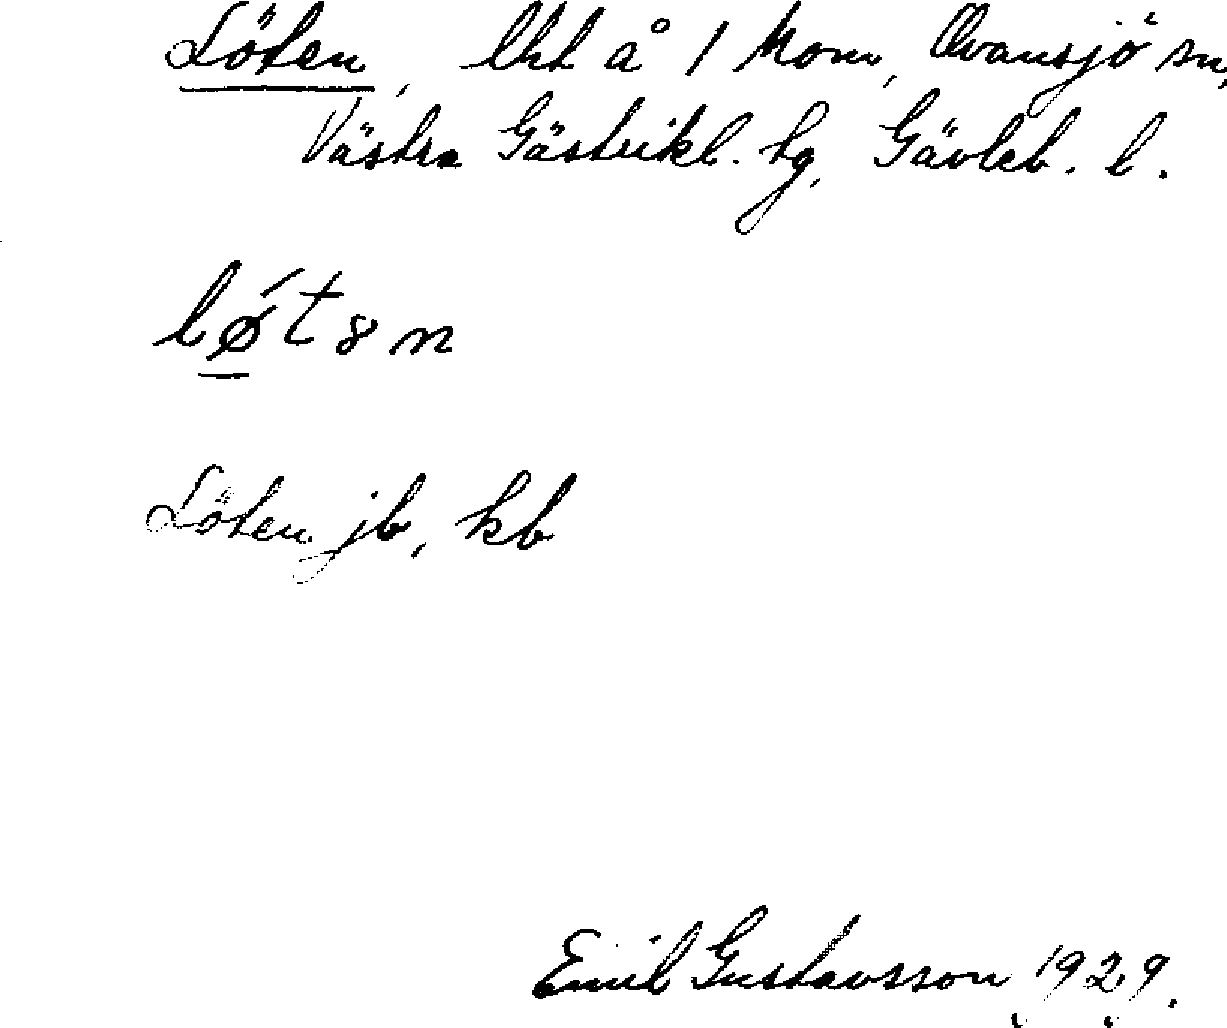 Löten, lht å 1 hom, Ovansjö sn,
Västra Gästrikl. tg, Gävleb. l.
lǿt8n
Löten jb, kb
Emil Gustavsson 1929.